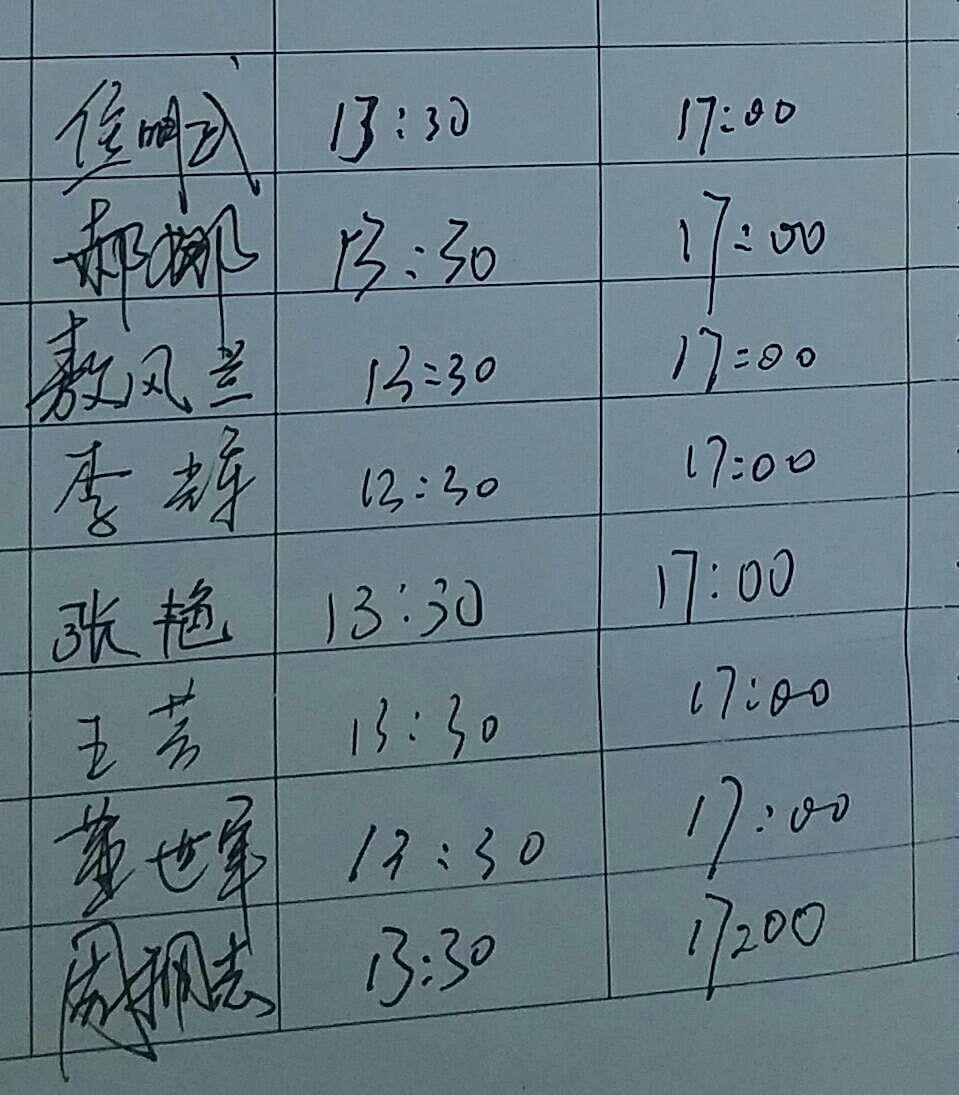 13:30 17:00
郝娜 13:30 17:00
敖风兰 13:30 17:00
李辉 13:30 17:00
张艳 13:30 17:00
王芳 13:30 17:00
董世军 13:30 17:00
周 13:30 17:00